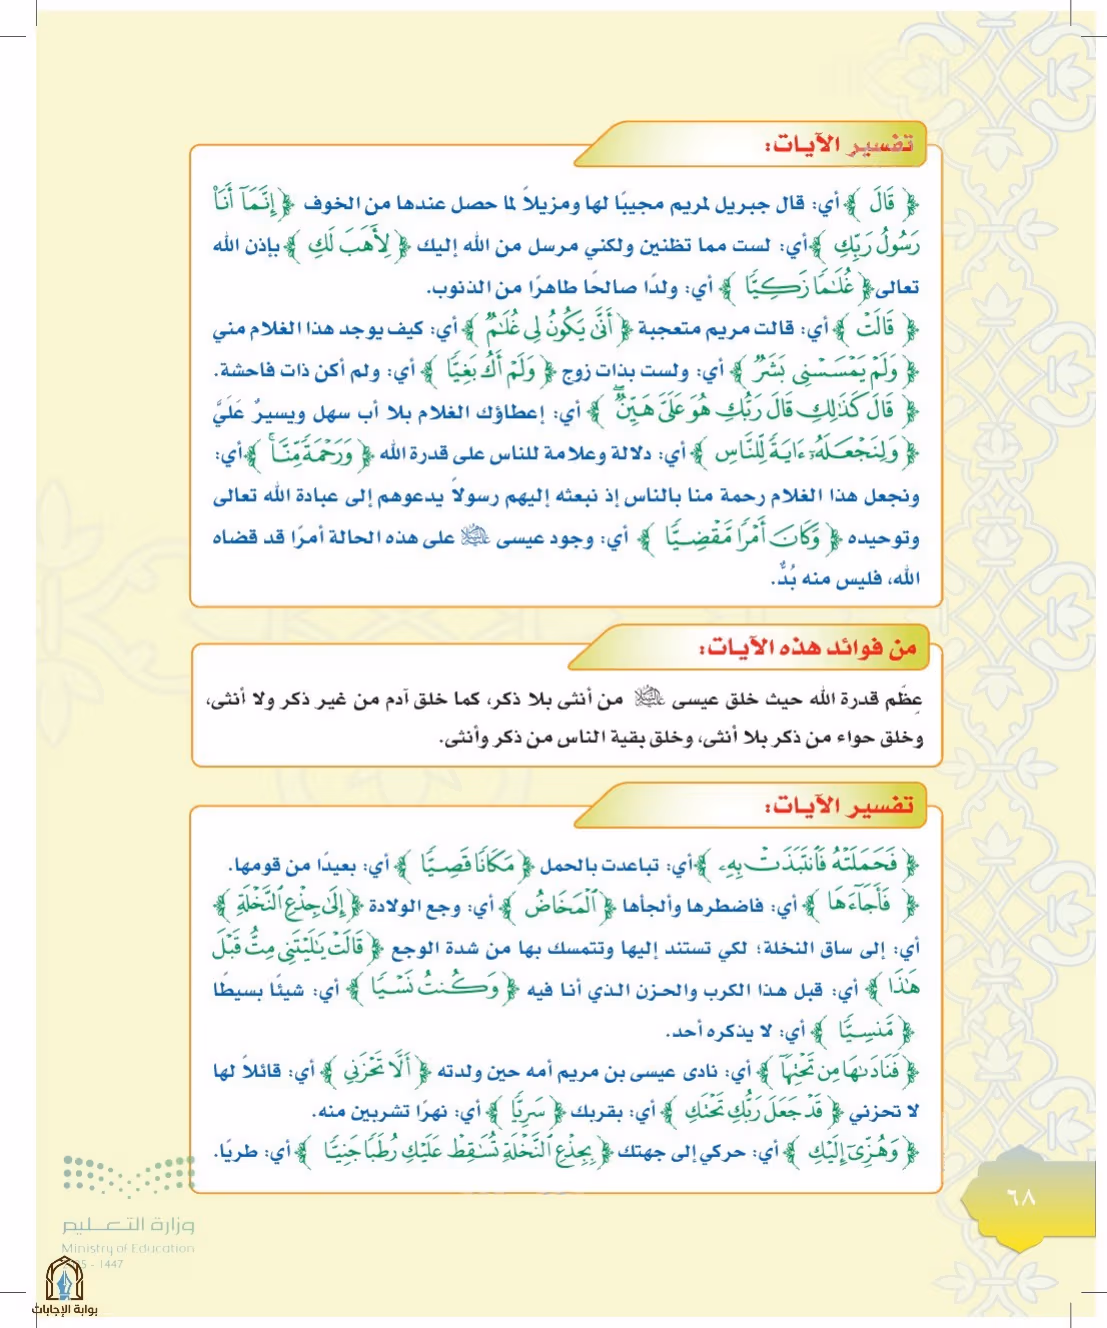 تفسير الآيات:
﴿ قَالَ ﴾ أي: قال جبريل لمريم مجيبًا لها ومزيلاً لما حصل عندها من الخوف ﴿ إِنَّمَآ أَنَا۠
رَسُولُ رَبِّكِ ﴾ أي: لست مما تظنين ولكني مرسل من الله إليك ﴿ لِأَهَبَ لَكِ ﴾ بإذن الله
تعالى ﴿ غُلَٰمٗا زَكِيّٗا ﴾ أي: ولدًا صالحًا طاهرًا من الذنوب.
﴿ قَالَتۡ ﴾ أي: قالت مريم متعجبة ﴿ أَنَّىٰ يَكُونُ لِي غُلَٰمٞ ﴾ أي: كيف يوجد هذا الغلام مني
﴿ وَلَمۡ يَمۡسَسۡنِي بَشَرٞ ﴾ أي: ولست بذات زوج ﴿ وَلَمۡ أَكُ بَغِيّٗا ﴾ أي: ولم أكن ذات فاحشة.
﴿ قَالَ كَذَٰلِكِ قَالَ رَبُّكِ هُوَ عَلَيَّ هَيِّنٞۖ ﴾ أي: إعطاؤك الغلام بلا أب سهل ويسيرٌ عَلَيَّ
﴿ وَلِنَجۡعَلَهُۥٓ ءَايَةٗ لِّلنَّاسِ ﴾ أي: دلالة وعلامة للناس على قدرة الله ﴿ وَرَحۡمَةٗ مِّنَّاۚ ﴾ أي:
ونجعل هذا الغلام رحمة منا بالناس إذ نبعثه إليهم رسولاً يدعوهم إلى عبادة الله تعالى
وتوحيده ﴿ وَكَانَ أَمۡرٗا مَّقۡضِيّٗا ﴾ أي: وجود عيسى عليه السلام على هذه الحالة أمرًا قد قضاه
الله، فليس منه بُدٌّ.
من فوائد هذه الآيات:
عِظَم قدرة الله حيث خلق عيسى عليه السلام من أنثى بلا ذكر، كما خلق آدم من غير ذكر ولا أنثى،
وخلق حواء من ذكر بلا أنثى، وخلق بقية الناس من ذكر وأنثى.
تفسير الآيات:
﴿ فَحَمَلَتۡهُ فَٱنتَبَذَتۡ بِهِۦ ﴾ أي: تباعدت بالحمل ﴿ مَكَانٗا قَصِيّٗا ﴾ أي: بعيدًا من قومها.
﴿ فَأَجَآءَهَا ﴾ أي: فاضطرها وألجأها ﴿ ٱلۡمَخَاضُ ﴾ أي: وجع الولادة ﴿ إِلَىٰ جِذۡعِ ٱلنَّخۡلَةِ ﴾
أي: إلى ساق النخلة؛ لكي تستند إليها وتتمسك بها من شدة الوجع ﴿ قَالَتۡ يَٰلَيۡتَنِي مِتُّ قَبۡلَ
هَٰذَا ﴾ أي: قبل هذا الكرب والحزن الذي أنا فيه ﴿ وَكُنتُ نَسۡيٗا ﴾ أي: شيئًا بسيطًا
﴿ مَّنسِيّٗا ﴾ أي: لا يذكره أحد.
﴿ فَنَادَىٰهَا مِن تَحۡتِهَآ ﴾ أي: نادى عيسى بن مريم أمه حين ولدته ﴿ أَلَّا تَحۡزَنِي ﴾ أي: قائلاً لها
لا تحزني ﴿ قَدۡ جَعَلَ رَبُّكِ تَحۡتَكِ ﴾ أي: بقربك ﴿ سَرِيّٗا ﴾ أي: نهرًا تشربين منه.
﴿ وَهُزِّيٓ إِلَيۡكِ ﴾ أي: حركي إلى جهتك ﴿ بِجِذۡعِ ٱلنَّخۡلَةِ تُسَٰقِطۡ عَلَيۡكِ رُطَبٗا جَنِيّٗا ﴾ أي: طريًا.
٦٨
وزارة التعليم
Ministry of Education
5 - 1447
بوابة الإجابات